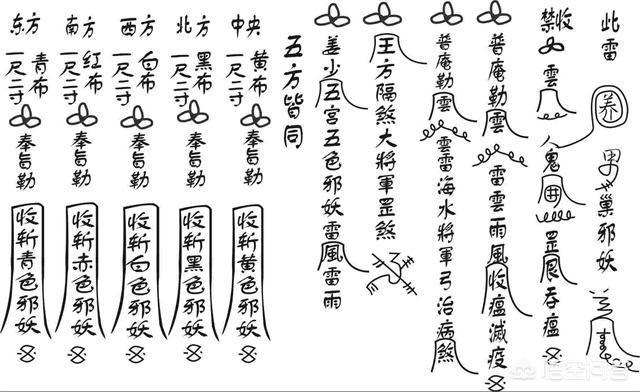 此雷
养
巢邪妖
禁收
雲
人鬼
罡
吞瘟
普庵勒雲
雷雲雨風收瘟滅疫
普庵勒雲
雲雷海水將軍弓治病煞
王方隔煞大將軍罡煞
姜少五宫五色邪妖雷風雷雨
五方皆同
中央
黄布
一尺二寸
奉旨勒
收斩黄色邪妖
北方
黑布
一尺二寸
奉旨勒
收斩黑色邪妖
西方
白布
一尺二寸
奉旨勒
收斩白色邪妖
南方
红布
一尺二寸
奉旨勒
收斩赤色邪妖
东方
青布
一尺二寸
奉旨勒
收斩青色邪妖
悟空问答